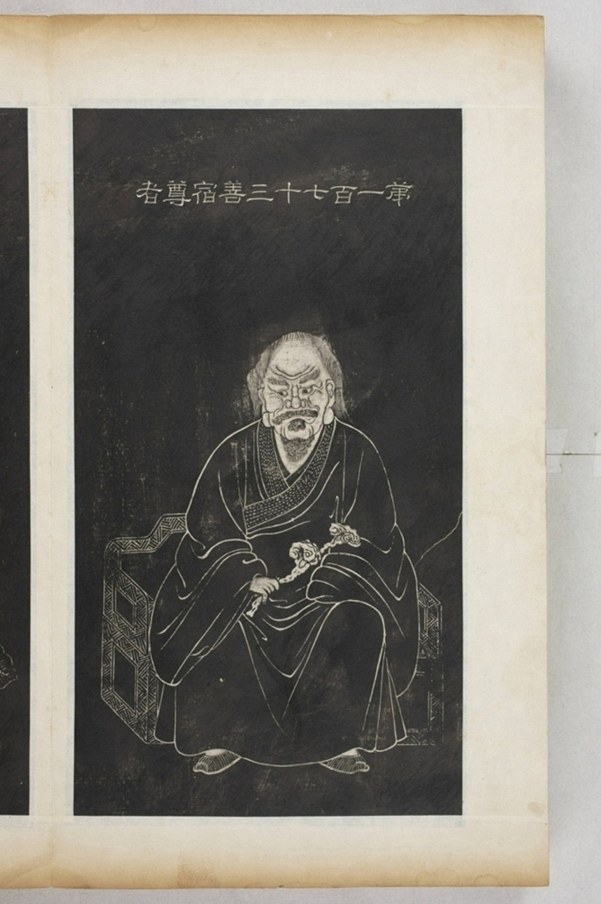 第一百七十三善宿尊者